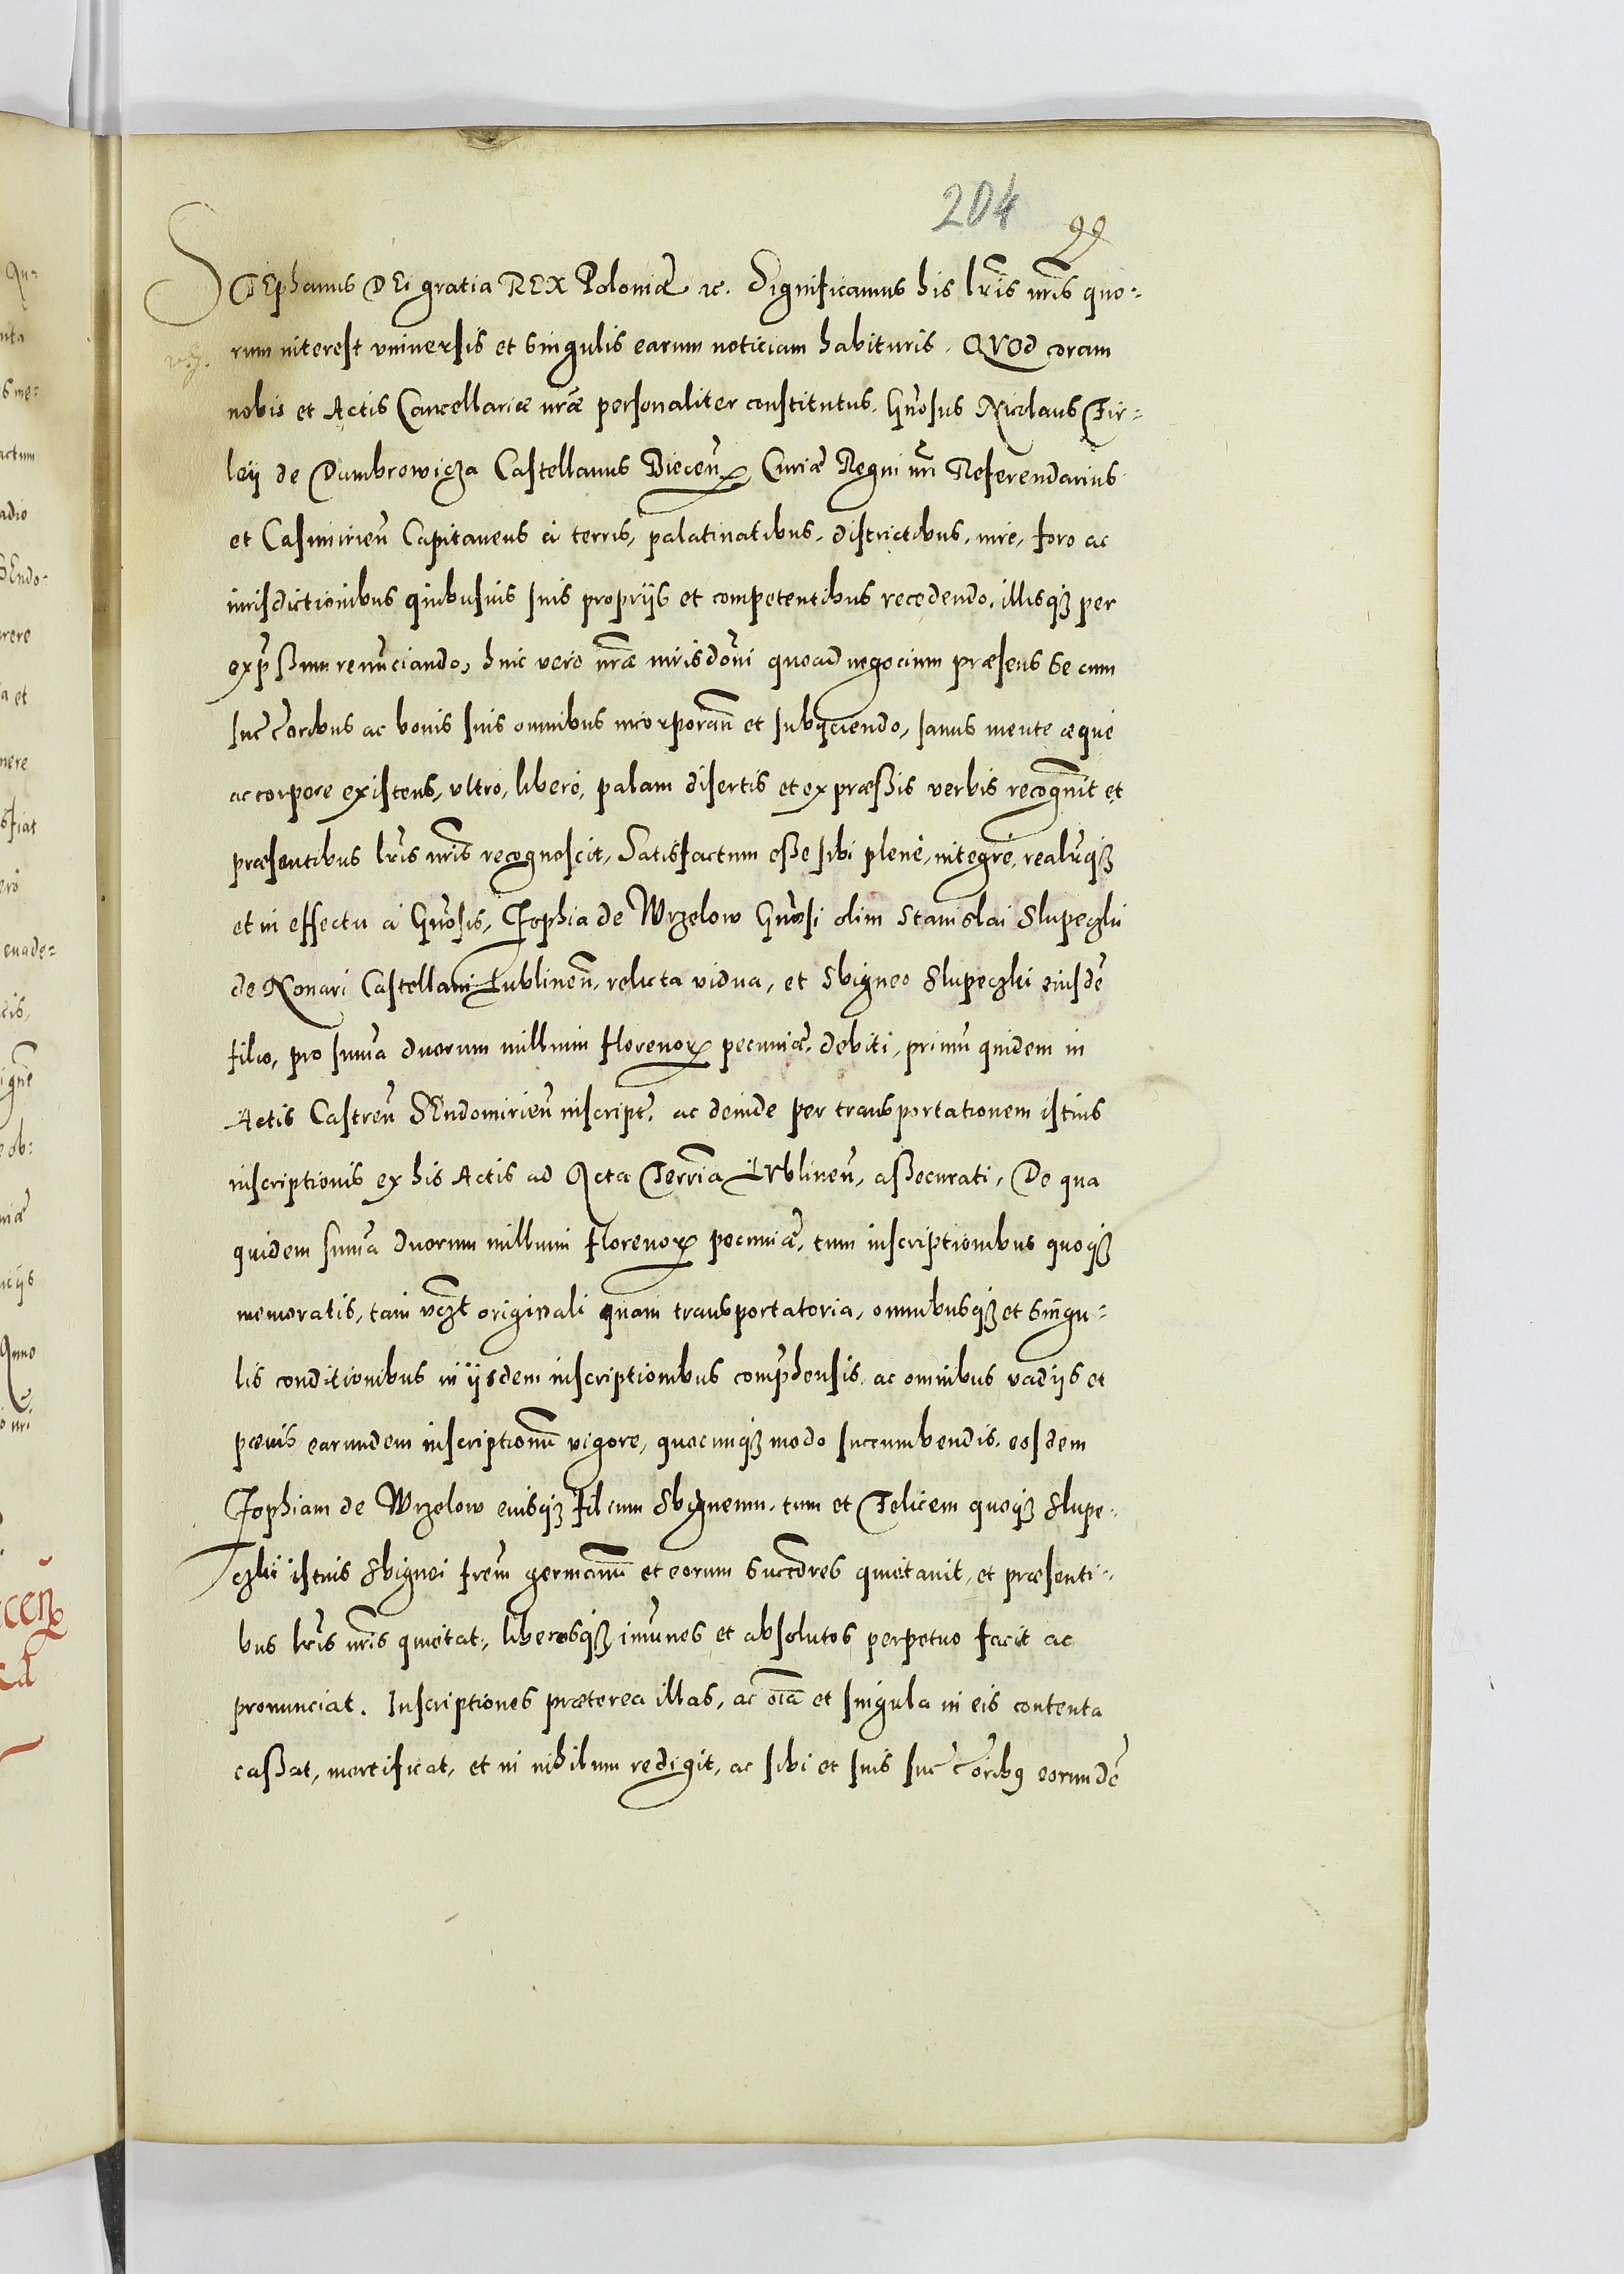 204 99
STEphanus DEi gratia REX Poloniæ ꝛc. Significamus his lr̃is nr̃is quo=
rum interest vniuersis et singulis earum noticiam habituris. QVOd coram
nobis et Actis Cancellariæ nr̃æ personaliter constitutus, Gn̄osus Nicolaus Fir=
leÿ de Dambrowicza Castellanus Biecen̄, Curiæ Regni nr̃i Referendarius
et Casimirien̄ Capitaneus à terris, palatinatibus, districtibus, iure, foro ac
iurisdictionibus quibusuis suis proprijs et competentibus recedendo, illisqꝫ per
exp̄ssum renunciando, huic vero nr̃æ iurisdōni quoad negocium præsens se cum
succ̄oribus ac bonis suis omnibus incorporan̄ et subijciendo, sanus mente æque
ac corpore existens, vltro, liberè, palam disertis et expræssis verbis recognouit et
præsentibus lr̃is nr̃is recognoscit, Satisfactum esse sibi plenè, integrè, realr̃qꝫ
et in effectu à Gn̄osis, Zophia de Wrzelow Gn̄osi olim Stanislai Slupeczki
de Konari Castellani Lublinen̄, relicta vidua, et Sbigneo Slupeczki eiusdē
filio, pro sum̄a duorum millium florenoꝝ pecuniæ, debiti, primū quidem in
Actis Castren̄ SEndomirien̄ inscript̄, ac deinde per transportationem istius
inscriptionis ex his Actis ad Acta Terrr̃ia LVblinen̄, assecurati, De qua
quidem sum̄a duorum millium florenoꝝ pecuniæ, tum inscriptionibus quoqꝫ
memoratis, tam vꝫt originali quam transportatoria, omnibusqꝫ et singu=
lis conditionibus in ijsdem inscriptionibus comp̄hensis, ac omnibus vadijs et
pœnis earundem inscriptionū vigore, quocunqꝫ modo succumbendis, eosdem
Zophiam de Wrzelow eiusqꝫ filium Sbigneum, tum et Felicem quoqꝫ Slupe=
czki istius Sbignei frem̄ germanū et eorum succ̄ores quietauit, et præsenti=
bus lr̃is nr̃is quietat, liberosqꝫ im̄unes et absolutos perpetuo facit ac
pronunciat. Inscriptiones præterea illas, ac oīa et singula in eis contenta
cassat, mortificat, et in nihilum redigit, ac sibi et suis succ̄oribꝰ eorundē